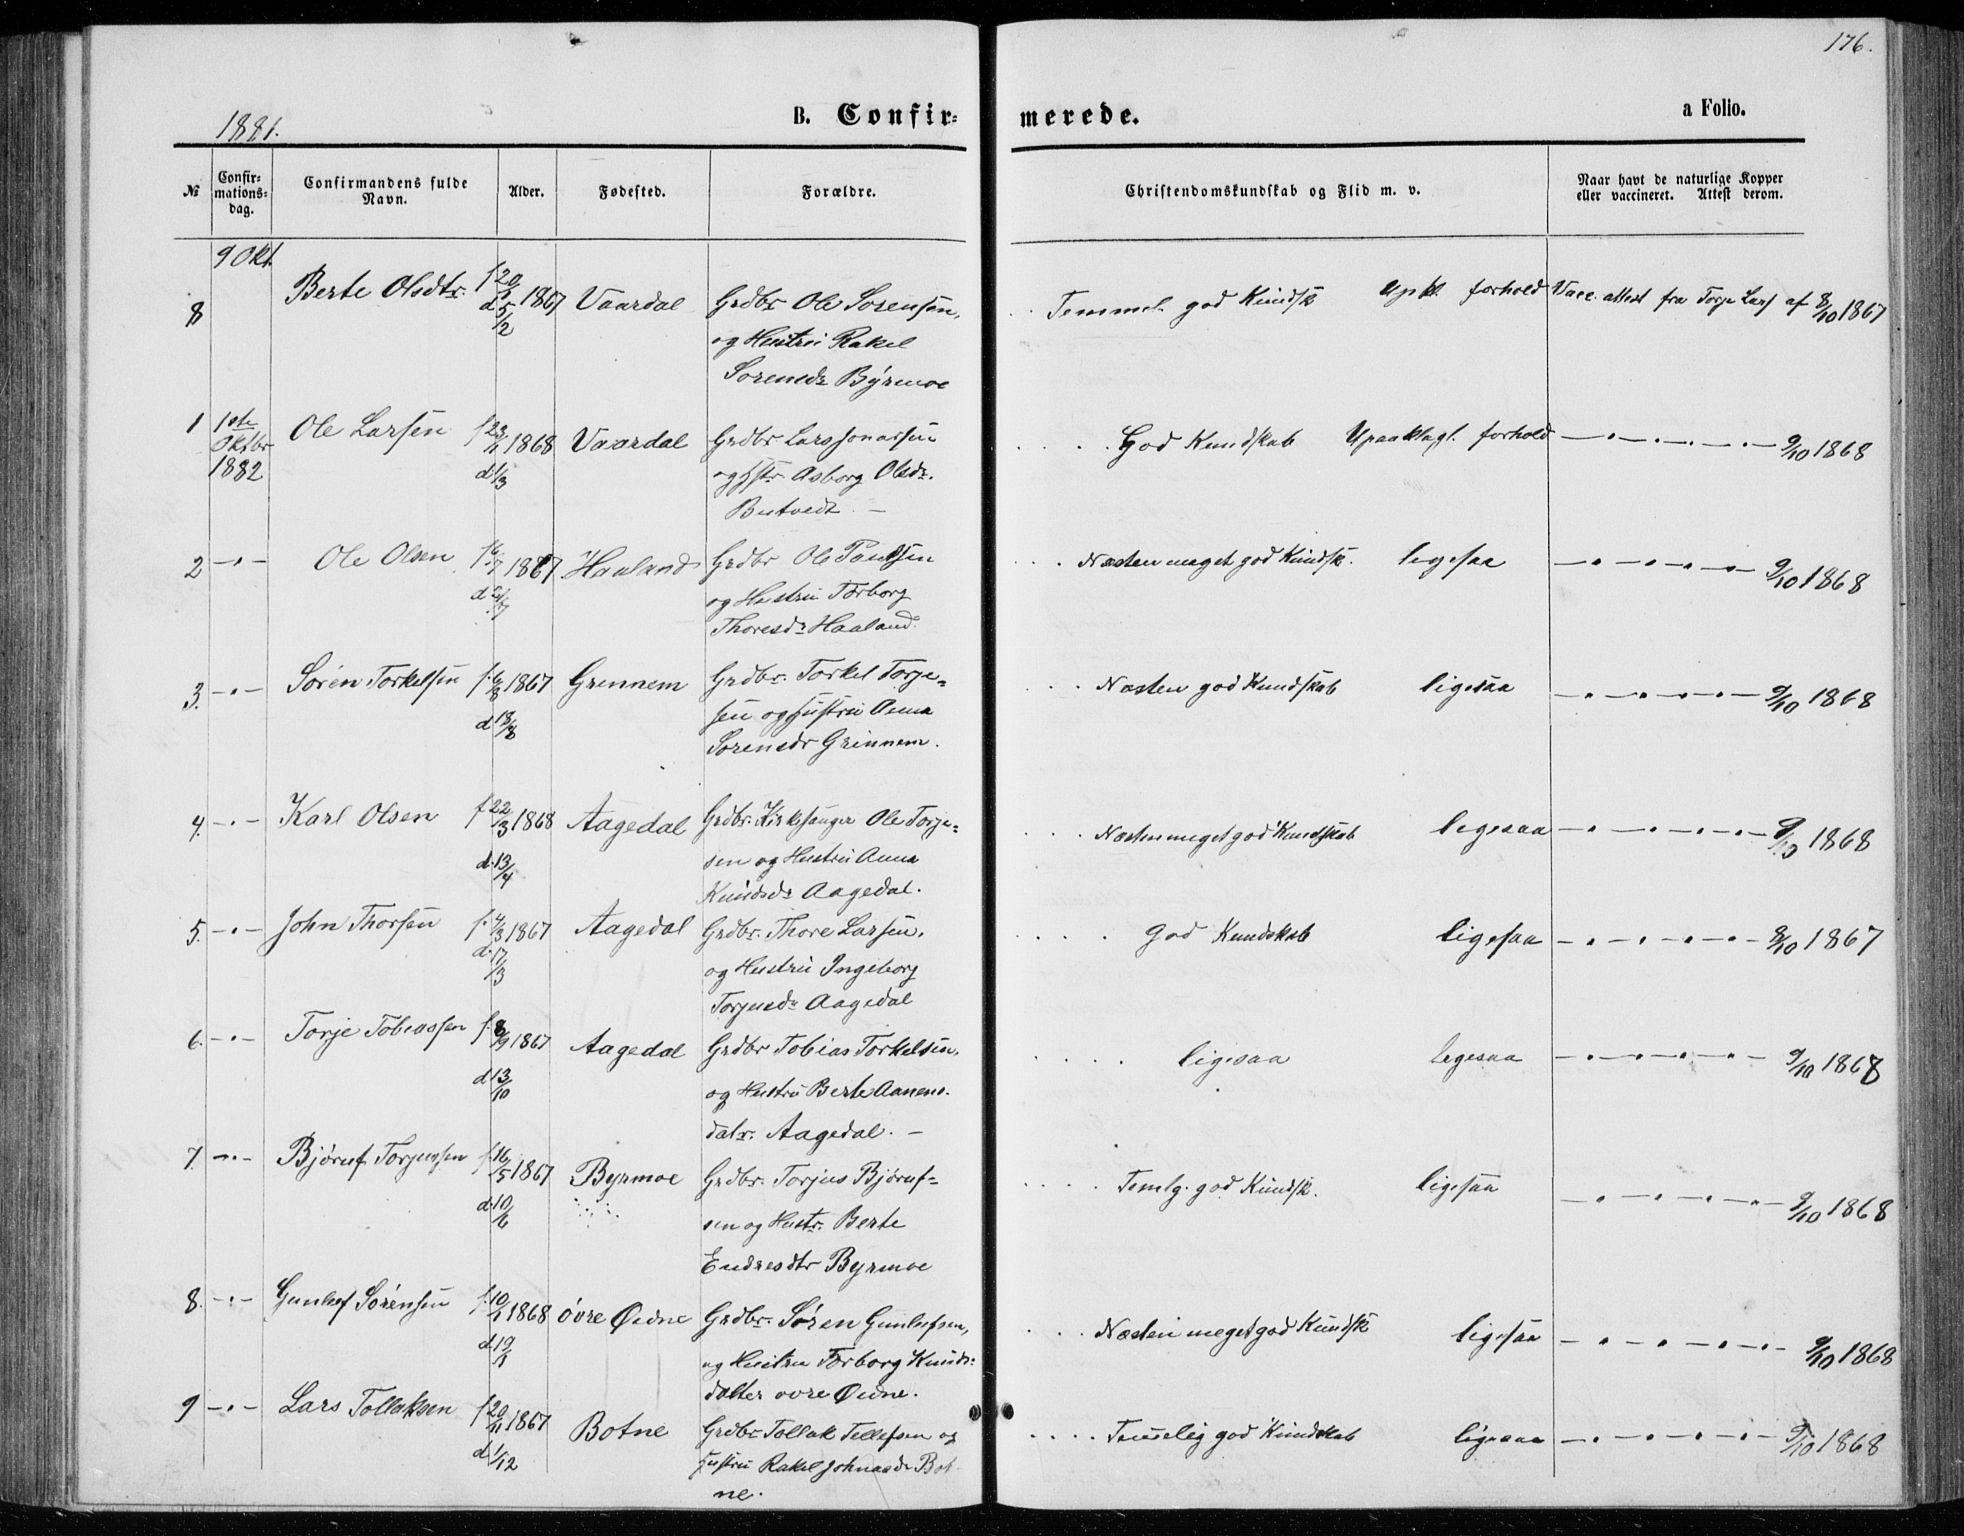 176.
1881.
B. Confir-
merede.
a Folio.
№
Confir-
mations-
dag.
Confirmandens fulde
Navn.
Alder.
Fødested.
Forældre.
Christendomskundskab og Flid m. v.
Naar havt de naturlige Kopper
eller vaccineret. Attest derom.
9 Okt.
8 Berte Olsdtr. 1867 Vaardal Grdbr Ole Sorensen, Temmel. god Kundsk upkl. forhold Vacc. attest fra Torje Lars af 8/10 1867
d 5/2
og Hustru Rakel
Sorensdr Byrmoe
1 1ste Oktbr 1882 Ole Larsen 1868 Vaardal Grdbr Lars Jonassen God Kundskab Upaaklagl. forhold — " — " — 9/10 1868
d 1/3 og Hstr Asborg Olsdr.
Butvedt —
2 — " — Ole Olsen 1867 Haaland Grdbr Ole Paulsen Næsten meget god Kundsk. ligesaa — " — " — 9/10 1868
og Hustru Torborg
Thoresdr Haaland.
3. — " — Søren Torkelsen f. 6/8 1867 Grennem Grdbr. Torkel Torje- Næsten god Kundskab ligesaa — " — " — 9/10 1868
d 18/8 sen og Hustru Anna
Sorensdr Grinnem.
4. — " — Karl Olsen f 22/3 1868 Aagedal Grdbr. Kirkesanger Ole Torje- Næsten meget god Kundskab ligesaa — " — " — 9/10 1868
d. 13/4 sen og Hustru Anna
Knudsdr Aagedal.
5. — " — John Thorsen f. 4/3 1867 Aagedal Grdbr. Thore Larsen, god Kundskab ligesaa — " — " — 8/10 1867
d. 17/3 og Hustru Ingeborg
Torjusdr Aagedal
6. — " — Torje Tobiassen f. 8/9 1867 Aagedal Grdbr Tobias Torkelsen, ligesaa ligesaa — " — " — 9/10 1868
d 13/10 og Hustru Berte Aanens-
datr. Aagedal. —
7. — " — Bjørnf Torjussen f. 16/5 1867 Byrmoe Grdbr. Torjus Bjørnf- Temlg. god Kundsk. ligesaa — " — " — 9/10 1868
d. 10/6 sen og Hustr. Berte
Endresdtr Byrmoe
8. — " — Gunlef Sørensen f. 10/1 1868 øvre Øidne Grdbr. Søren Gunlefsen, Næsten meget god Kundsk ligesaa — " — " — 9/10 1868
d 19/1 og Hustru Torborg Knuds-
datter øvre Øidne.
9 — " — Lars Tollaksen f 20/11 1867 Botne Grdbr Tollak Tellefsen og Temmelig god Kundskab ligesaa — " — " — 9/10 1868
d 1/12 Hustru Rakel Johnasdr Bot-
ne.